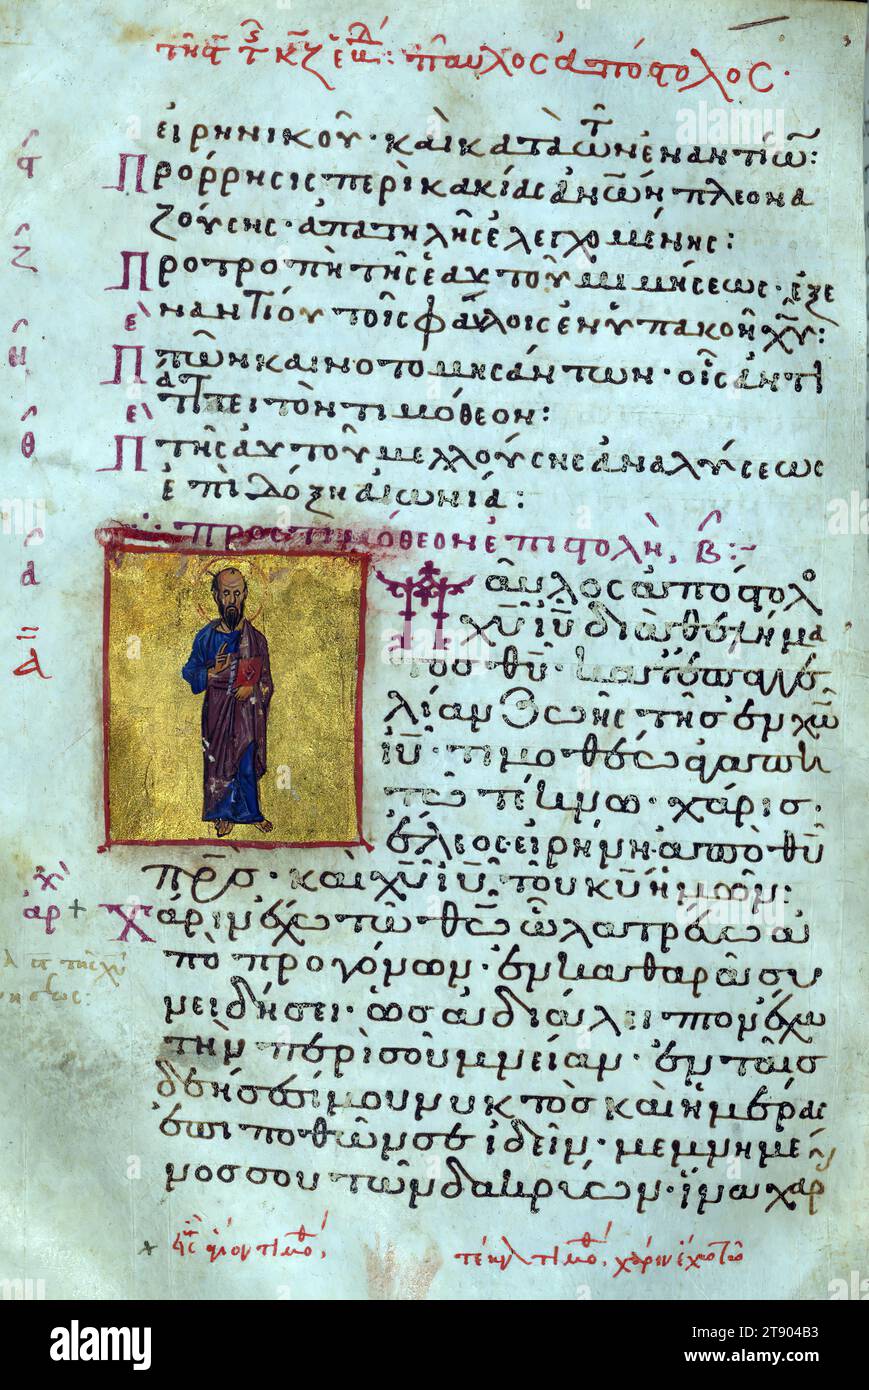 εἰρηνικοῦ · καὶ κατὰ τῶν ἐναντίων :
Πρόρρησις περὶ κακίας ἀνων πλεονα
ζούσης · ἀπατηλῆς ἐλεγχομένης :
Προτροπὴ τῆς ἑαυτοῦ μιμήσεως · ἐξε
ναντίου τοῖς φαύλοις ἐν ὑπακοῆ χυ :
Π τῶν καινοτομησάντων · οἷς ἀντι
τάττει τὸν τιμόθεον :
Π τῆς αὐτοῦ μελλούσης ἀναλύσεως
ἐπὶ δόξη αἰωνία :
πρὸς τιμόθεον ἐπιστολὴ , β :
Παῦλος ἀπόστολο
χυ ιυ διὰ θελήμα
τος θυ · κατ ἐπαγγε
λίαν ζωῆς τῆς ἐν χω
ιυ · τιμοθέω ἀγαπη
τῶ τέκνω · χάρις ·
ἔλεος · εἰρήνη · ἀπὸ θυ
πρς · καὶ χυ ιυ τοῦ κυ ἡμῶν :
Χάριν ἔχω τῶ θεῶ ὧ λατρεύω ἀ
πὸ προγόνων · ἐν καθαρᾶ συ
νειδήσει · ὡς ἀδιάλειπτον ἔχω
τὴν περὶ σοῦ μνείαν · ἐν ταῖς
δεήσεσί μου νυκτὸς καὶ ἡμέρας
ἐπιποθῶν σε ἰδεῖν · μεμνημέ
νος σου τῶν δακρύων · ἵνα χαρ
ϛ
ζ
η
θ
α
αρ
χ
alamy
alamy
Image ID: 2T904B3
www.alamy.com